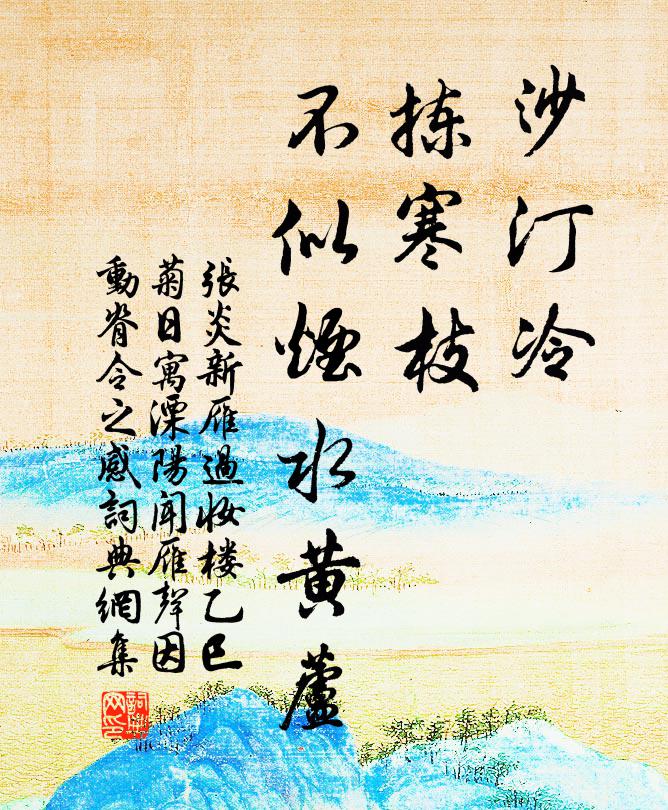 沙汀冷
揀寒枝
不似煙水黃蘆
張炎新雁過妝楼乙巳
菊日寓溧陽聞雁聲因
動脊令之感詞典網集